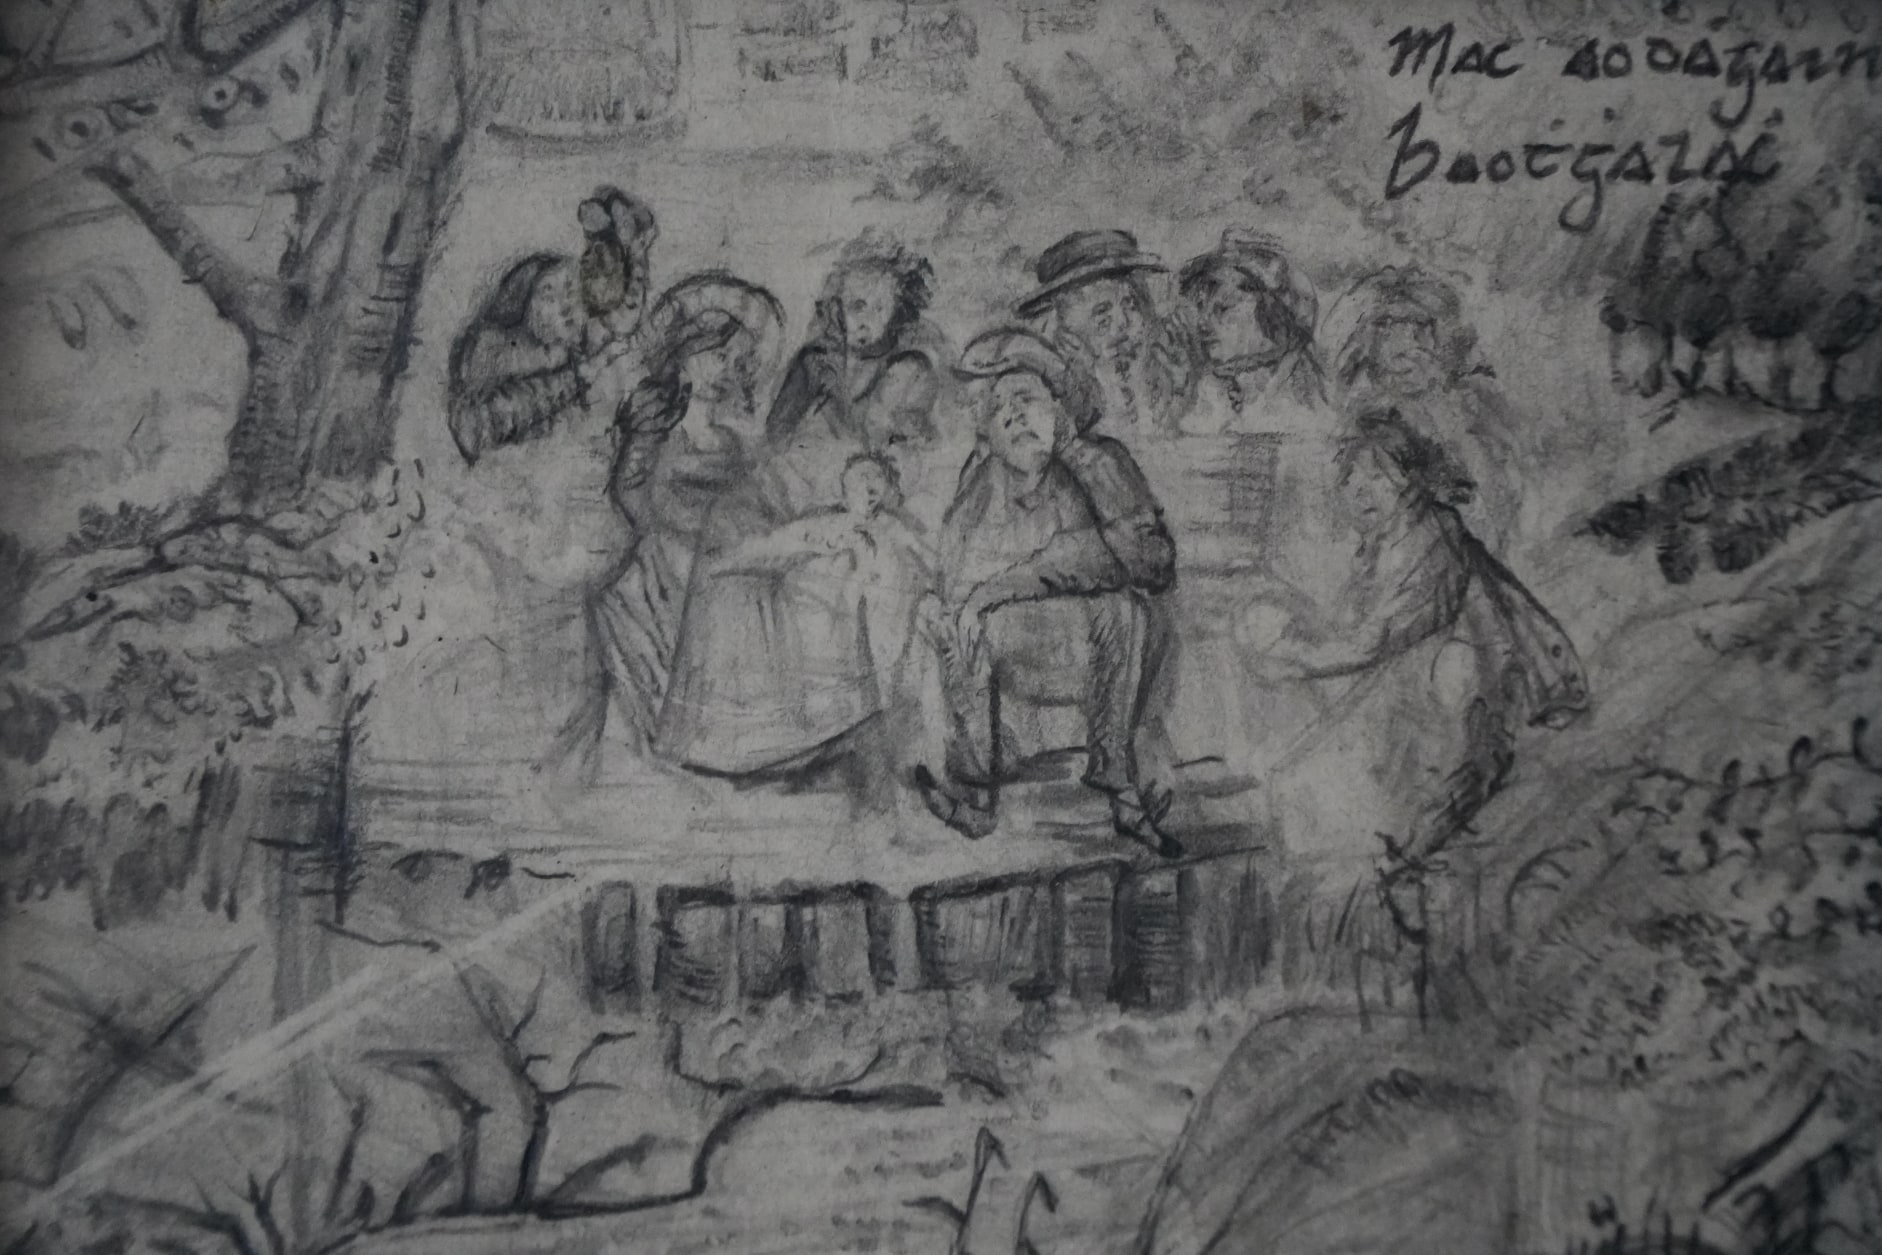 Mac aodagain
Baoṫġalaċ